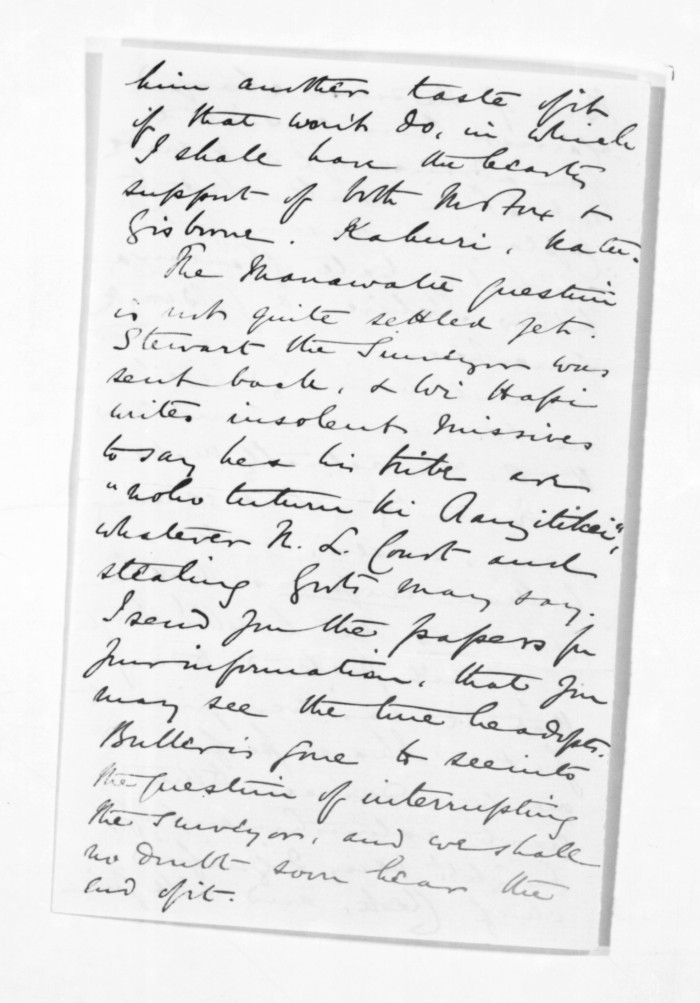 him another taste of it
if that won't do, in which
I shall have the hearty
support of both Mr Fox &
Gisborne. Kahuri, Katu.
The Manawatu question
is not quite settled yet.
Stewart the Surveyor was
sent back, & Wi Hapi
writes insolent missives
to say he & his tribe are
"noho tuturu ki Rangitikei",
whatever N. L. Court and
stealing Govts may say.
I send you the papers for
your information, that you
may see the line he adopts.
Buller is gone to see into
the question of interrupting
the Surveyor, and we shall
no doubt soon hear the
end of it.